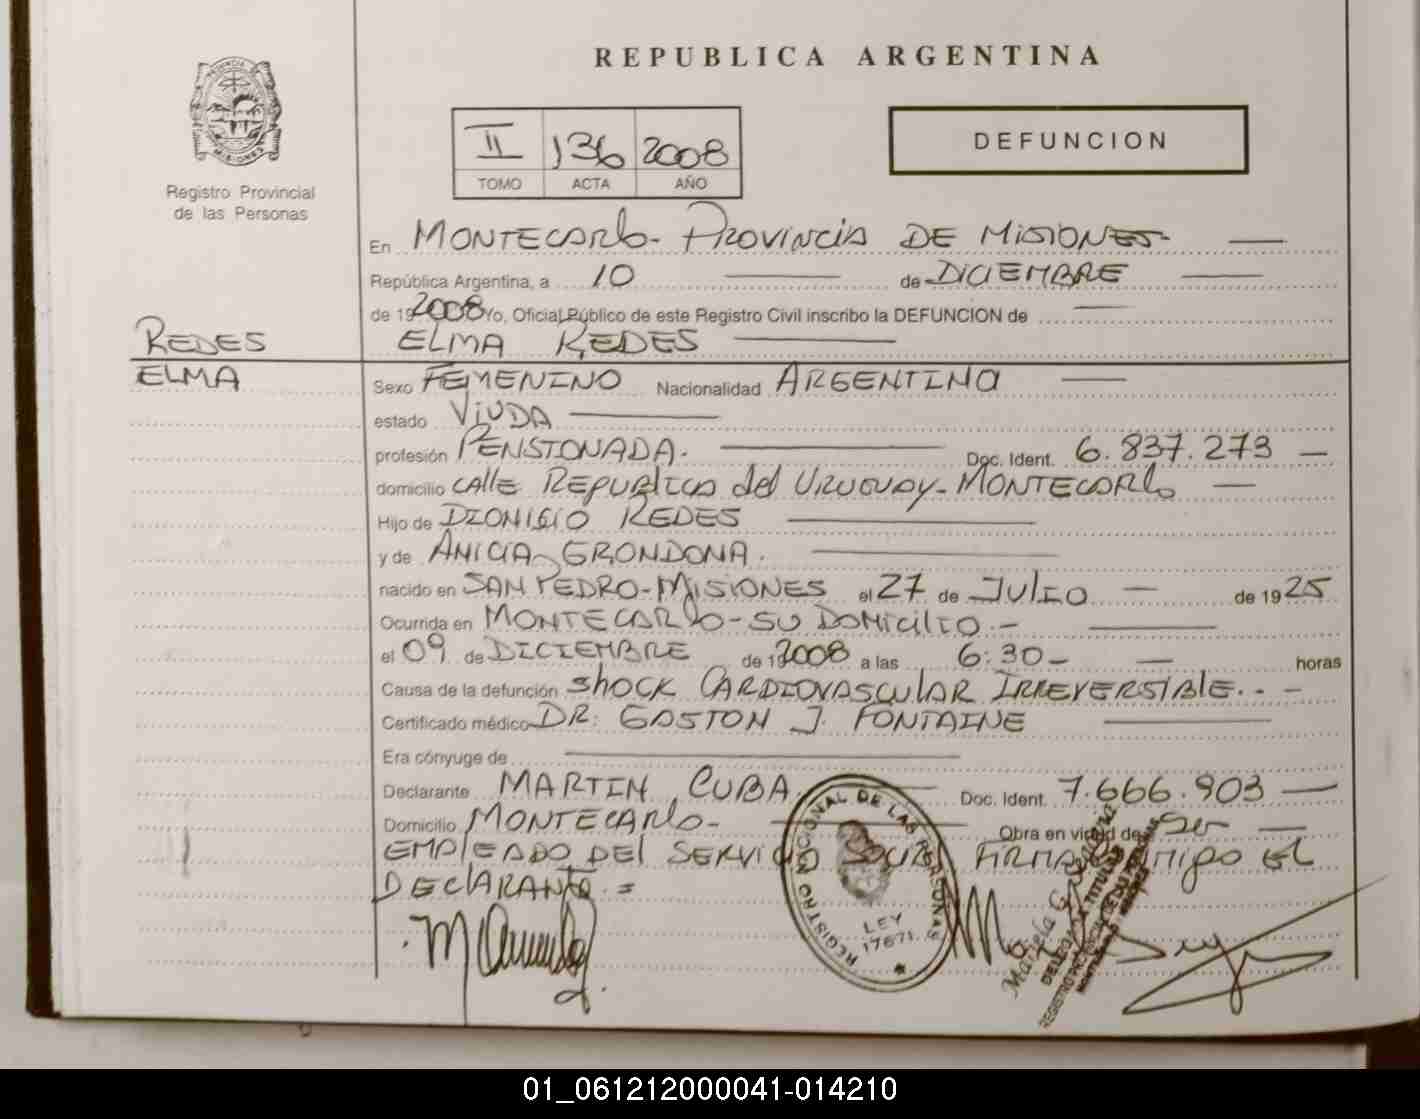 REPUBLICA ARGENTINA
PROVINCIA
MISIONES
Registro Provincial
de las Personas
II 136 2008
TOMO ACTA AÑO
DEFUNCION
En MONTECARLO- PROVINCIA DE MISIONES-
República Argentina, a 10 de DICIEMBRE
de 19 2008 Yo, Oficial Público de este Registro Civil inscribo la DEFUNCION de
REDES ELMA REDES
ELMA Sexo FEMENINO Nacionalidad ARGENTINA
estado VIUDA
profesión PENSIONADA. Doc. Ident. 6.837.273
domicilio CALLE REPUBLICA del URUGUAY- MONTECARLO
Hijo de DIONISIO REDES
y de ANICIA GRONDONA.
nacido en SAN PEDRO-MISIONES el 27 de JULIO de 1925
Ocurrida en MONTECARLO-SU DOMICILIO.-
el 09 de DICIEMBRE de 19 2008 a las 6:30- horas
Causa de la defunción SHOCK CARDIOVASCULAR IRREVERSIBLE.-
Certificado médico DR: GASTON J. FONTAINE
Era cónyuge de
Declarante MARTIN CUBA. Doc. Ident. 7.666.903
Domicilio MONTECARLO- Obra en virtud de Ser
EMPLEADO DEL SERVICIO SOCIAL FIRMA CMIGO EL
DECLARANTE.=
REGISTRO NACIONAL DE LAS PERSONAS
LEY
17671
Mariela
DELEGADA TITULAR
01_061212000041-014210